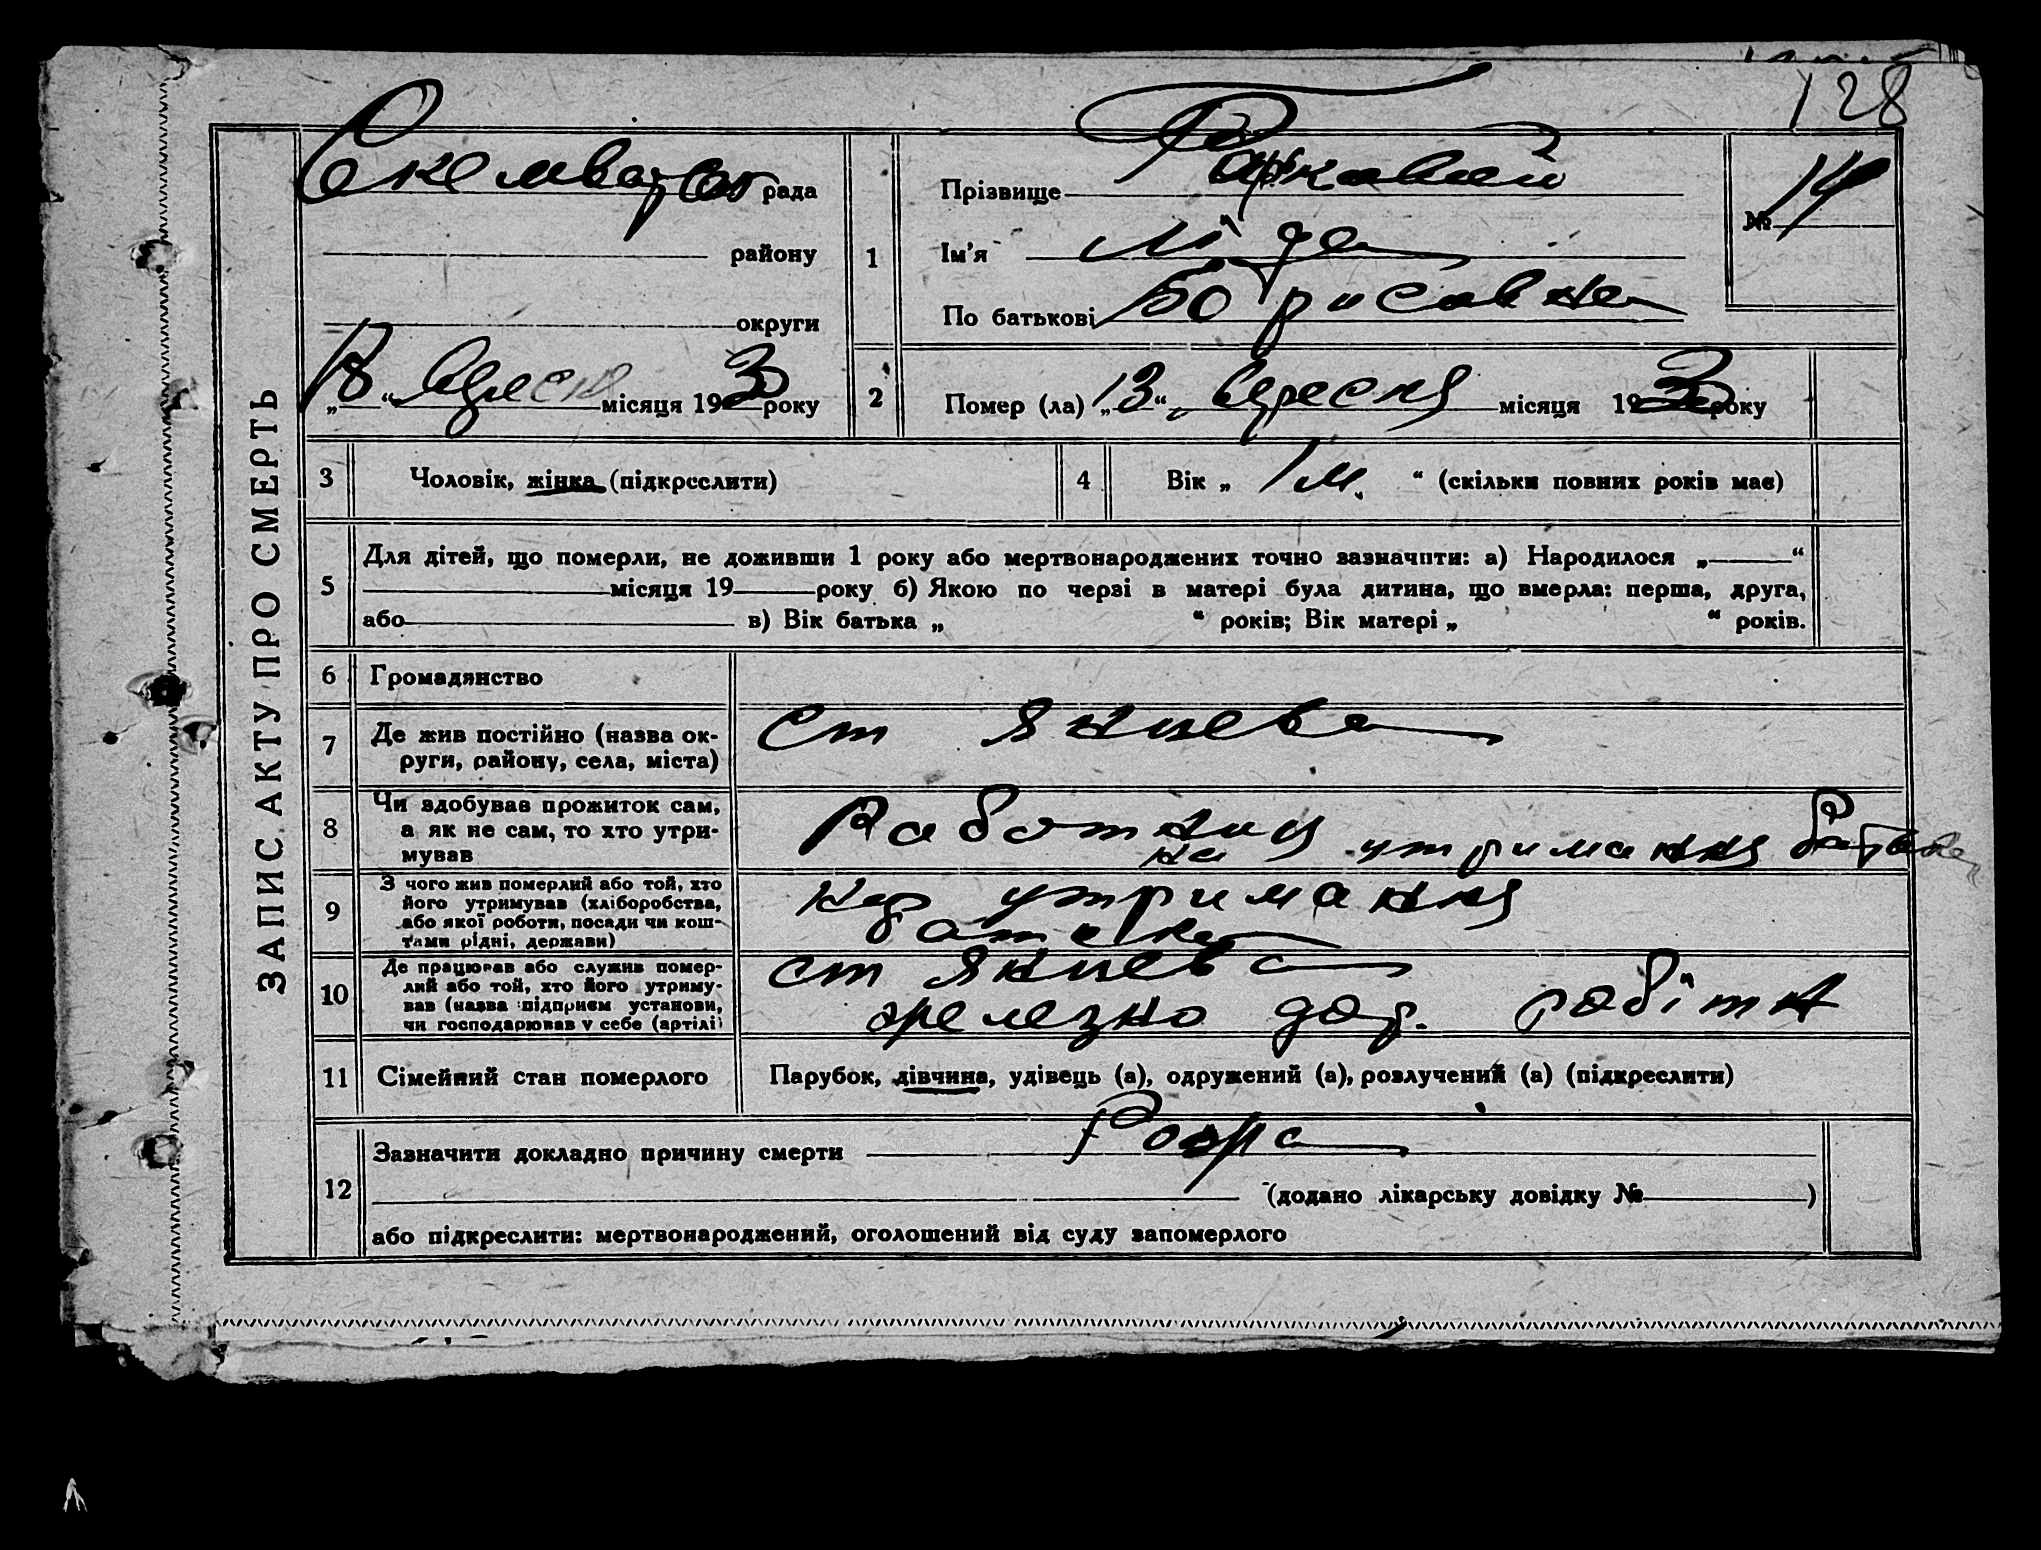 128
ЗАПИС АКТУ ПРО СМЕРТЬ
рада
району
округи
„18“ вересня місяця 1930 року
1
Прізвище
Ім'я Ліда
По батькові Борисовна
№ 14
2
Помер (ла) „13“ вересня місяця 1930 року
3
Чоловік, жінка (підкреслити)
4
Вік „ 1 м. “ (скільки повних років має)
5
Для дітей, що померли, не доживши 1 року або мертвонароджених точно зазначити: а) Народилося „ “
місяця 19 року б) Якою по черзі в матері була дитина, що вмерла: перша, друга,
або в) Вік батька „ “ років; Вік матері „ “ років.
6
Громадянство
7
Де жив постійно (назва ок-
руги, району, села, міста)
ст Янцева
8
Чи здобував прожиток сам,
а як не сам, то хто утри-
мував
на утримання
9
З чого жив померлий або той, хто
його утримував (хліборобства,
або якої роботи, посади чи кош-
тами рідні, держави)
утримання
батька
10
Де працював або служив помер-
лий або той, хто його утриму-
вав (назва підприєм установи,
чи господарював у себе (артілі)
ст Янцева
железно дор. робітн
11
Сімейний стан померлого
Парубок, дівчина, удівець (а), одружений (а), розлучений (а) (підкреслити)
12
Зазначити докладно причину смерти
(додано лікарську довідку № )
або підкреслити: мертвонароджений, оголошений від суду запомерлого